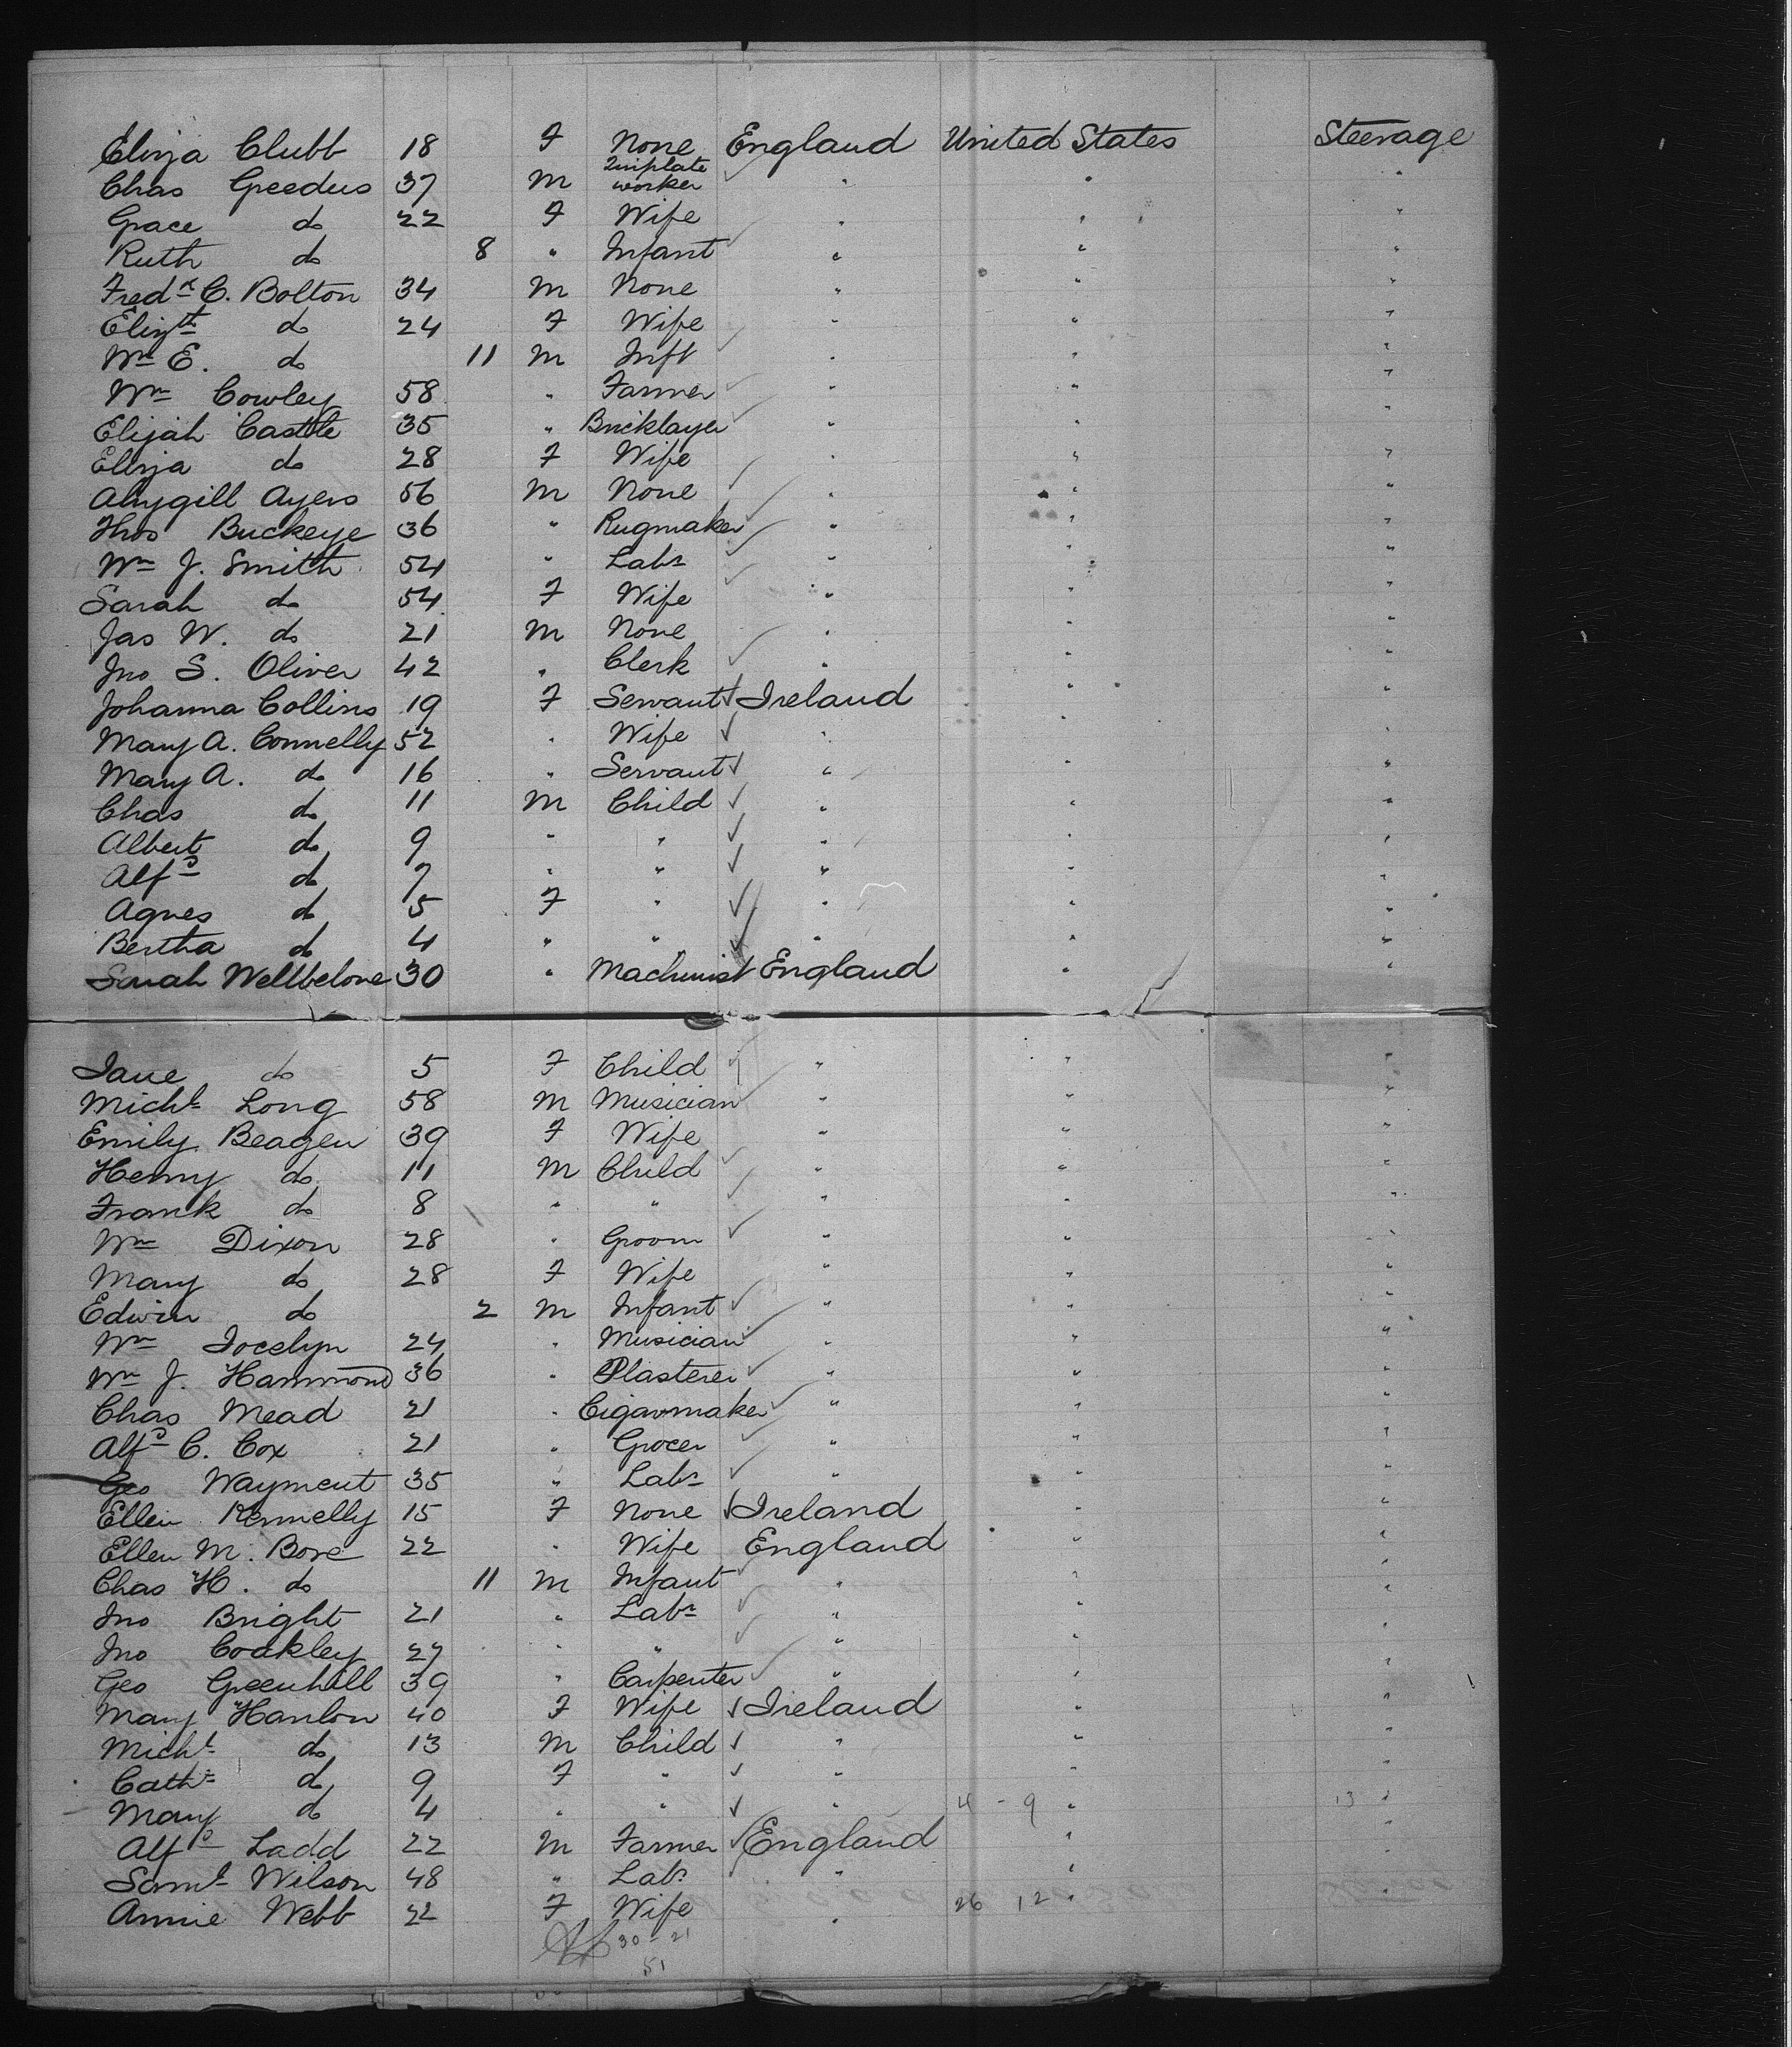 Eliza Clubb 18 F None England United States Steerage
Chas Greedus 37 M Tinplate worker " " "
Grace do 22 F Wife " " "
Ruth do 8 " Infant " " "
Fredk C. Bolton 34 M None " " "
Elizth do 24 F Wife " " "
Wm E. do 11 M Inft " " "
Wm Cowley 58 " Farmer " " "
Elijah Castle 35 " Bricklayer " " "
Eliza do 28 F Wife " " "
Abygill Ayers 56 M None " " "
Thos Buckeye 36 " Rugmaker " " "
Wm J. Smith 54 " Labr " " "
Sarah do 54 F Wife " " "
Jas W. do 21 M None " " "
Jno S. Oliver 42 " Clerk " " "
Johanna Collins 19 F Servant Ireland " "
Mary A. Connelly 52 " Wife " " "
Mary A. do 16 " Servant " " "
Chas do 11 M Child " " "
Albert do 9 " " " " "
Alfd do 7 " " " " "
Agnes do 5 F " " " "
Bertha do 4 " " " " "
Sarah Wellbelove 30 " Machinist England " "
Jane do 5 F Child " " "
Michl Long 58 M Musician " " "
Emily Beagen 39 F Wife " " "
Henry do 11 M Child " " "
Frank do 8 " " " " "
Wm Dixon 28 " Groom " " "
Mary do 28 F Wife " " "
Edwin do 2 M Infant " " "
Wm Jocelyn 24 " Musician " " "
Wm J. Hammond 36 " Plasterer " " "
Chas Mead 21 " Cigarmaker " " "
Alfd C. Cox 21 " Grocer " " "
Geo Wayment 35 " Labr " " "
Ellen Kennelly 15 F None Ireland " "
Ellen M. Bore 22 " Wife England " "
Chas H. do 11 M Infant " " "
Jno Bright 21 " Labr " " "
Jno Coakley 27 " " " " "
Geo Greenhill 39 " Carpenter " " "
Mary Hanlon 40 F Wife Ireland " "
Michl do 13 M Child " " "
Cathe do 9 F " " " "
Mary do 4 " " " 4 - 9 " 13 "
Alfd Ladd 22 M Farmer England " "
Saml Wilson 48 " Labr " " "
Annie Webb 22 F Wife " 26 12 " "
30 - 21
51